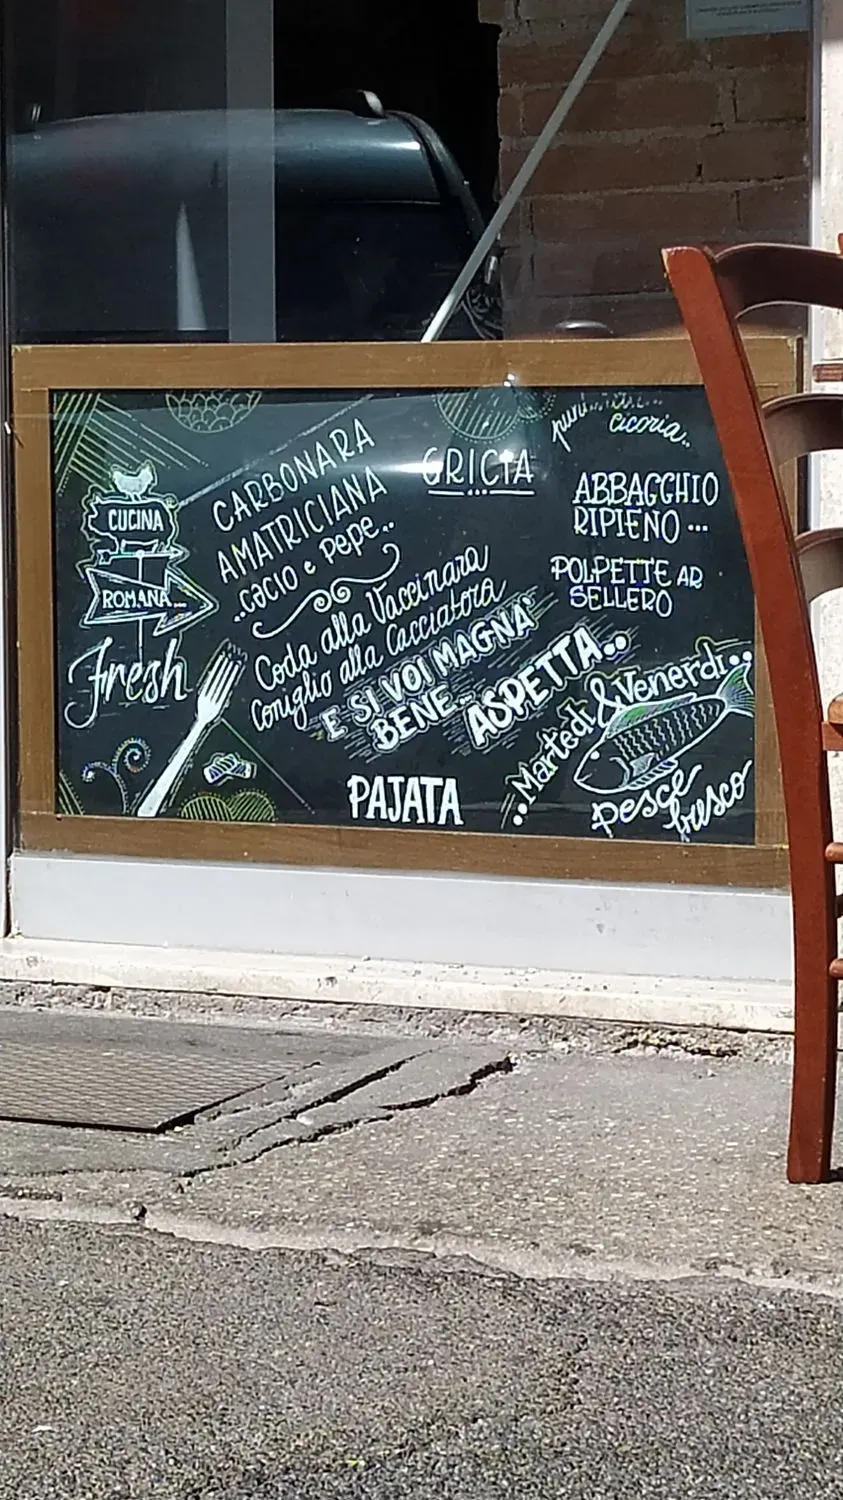 CUCINA
ROMANA...
Fresh
CARBONARA
AMATRICIANA
..cacio e pepe..
Coda alla Vaccinara
Coniglio alla Cacciatora
E SI VOI MAGNA'
BENE...
ASPETTA..
PAJATA
GRICIA
cicoria..
ABBACCHIO
RIPIENO...
POLPETTE AR
SELLERO
..Martedì & Venerdì..
pesce
fresco